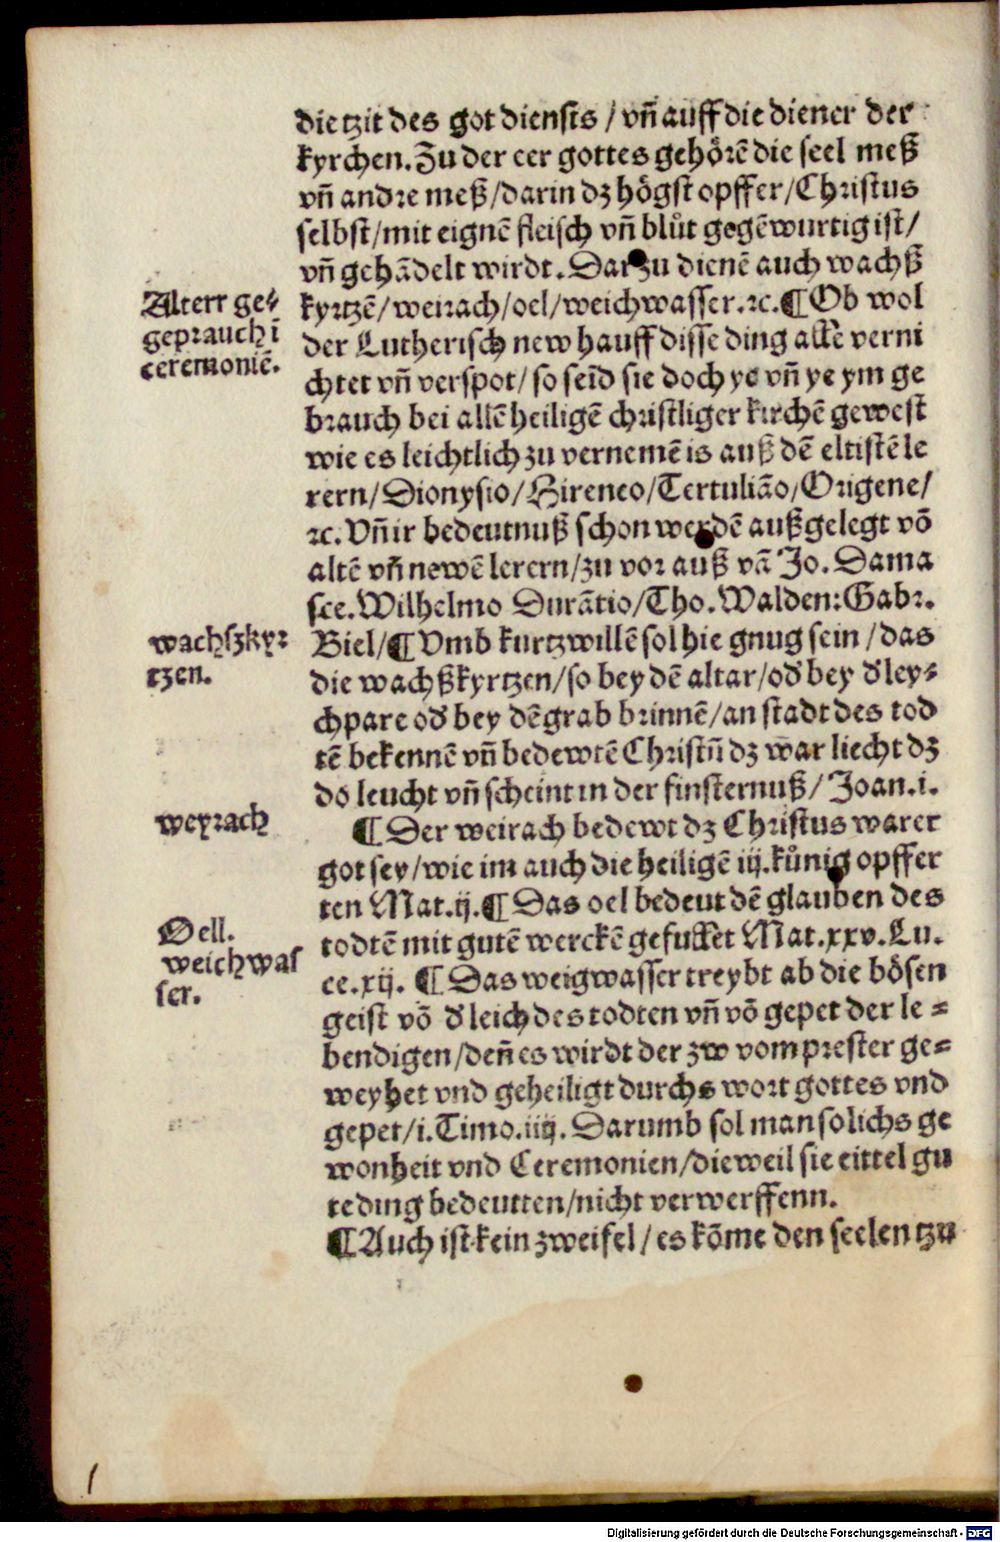 die tzit des got diensts / vñ auff die diener der
kyrchen. Zu der eer gottes gehörẽ die seel meß
vñ andre meß / darin dz högst opffer / Christus
selbst / mit eignẽ fleisch vñ blůt gegẽwurtig ist /
vñ gehãdelt wirdt. Darzu dienẽ auch wachß
Alterr ge⸗
geprauch ĩ
ceremoniẽ.
kyrtzẽ / weirach / oel / weichwasser. ꝛc. ¶ Ob wol
der Lutherisch new hauff disse ding alle verni
chtet vñ verspot / so seĩd sie doch ye vñ ye ym ge
brauch bei allẽ heiligẽ christliger kirchẽ gewest
wie es leichtlich zu vernemẽ is auß dẽ eltistẽ le
rern / Dionysio / Hireneo / Tertuliãо / Origene /
ꝛc. Vñ ir bedeutnuß schon werdẽ außgelegt võ
altẽ vñ newẽ lerern / zu vor auß vã Jo. Dama
sce. Wilhelmo Durãtio / Tho. Walden: Gabr.
wachszkyr
tzen.
Biel / ¶ Vmb kurtz willẽ sol hie gnug sein / das
die wachßkyrtzen / so bey dẽ altar / od̕ bey d̕ ley⸗
chpare od̕ bey dẽ grab brinnẽ / an stadt des tod
tẽ bekennẽ vñ bedewtẽ Christũ dz war liecht dz
do leucht vñ scheint in der finsternuß / Joan. i.
weyrach
¶ Der weirach bedewt dz Christus warer
got sey / wie im auch die heiligẽ iij. kůnig opffer
ten Mat. ij. ¶ Das oel bedeut dẽ glauben des
Oell.
weichwas
ser.
todtẽ mit gutẽ werckẽ gefullet Mat. xxv. Lu.
ce. xij. ¶ Das weigwasser treybt ab die bösen
geist võ d̕ leich des todten vñ võ gepet der le⸗
bendigen / deñ es wirdt der zw vom prester ge⸗
weyhet vnd geheiligt durchs wort gottes vnd
gepet / i. Timo. iiij. Darumb sol man solichs ge
wonheit vnd Ceremonien / die weil sie eittel gu
te ding bedeutten / nicht verwerffenn.
¶ Auch ist kein zweifel / es kõme den seelen tzu
Digitalisierung gefördert durch die Deutsche Forschungsgemeinschaft - DFG